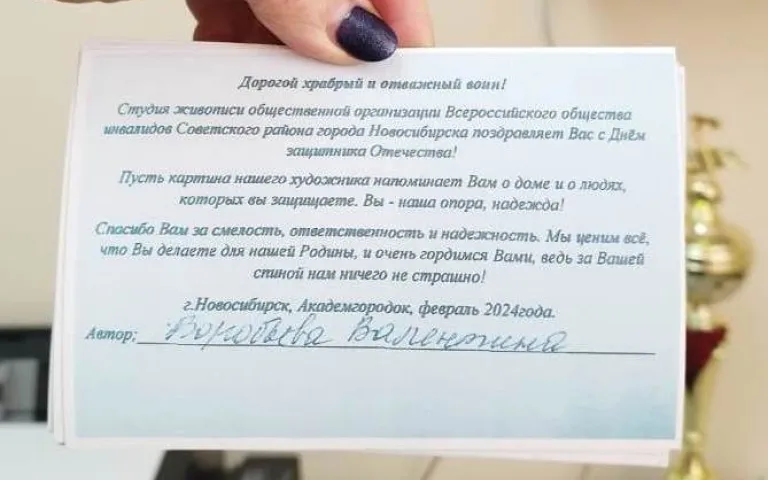 Дорогой храбрый и отважный воин!
Студия живописи общественной организации Всероссийского общества
инвалидов Советского района города Новосибирска поздравляет Вас с Днём
защитника Отечества!
Пусть картина нашего художника напоминает Вам о доме и о людях,
которых вы защищаете. Вы - наша опора, надежда!
Спасибо Вам за смелость, ответственность и надежность. Мы ценим всё,
что Вы делаете для нашей Родины, и очень гордимся Вами, ведь за Вашей
спиной нам ничего не страшно!
г.Новосибирск, Академгородок, февраль 2024года.
Автор: Воробьева Валентина